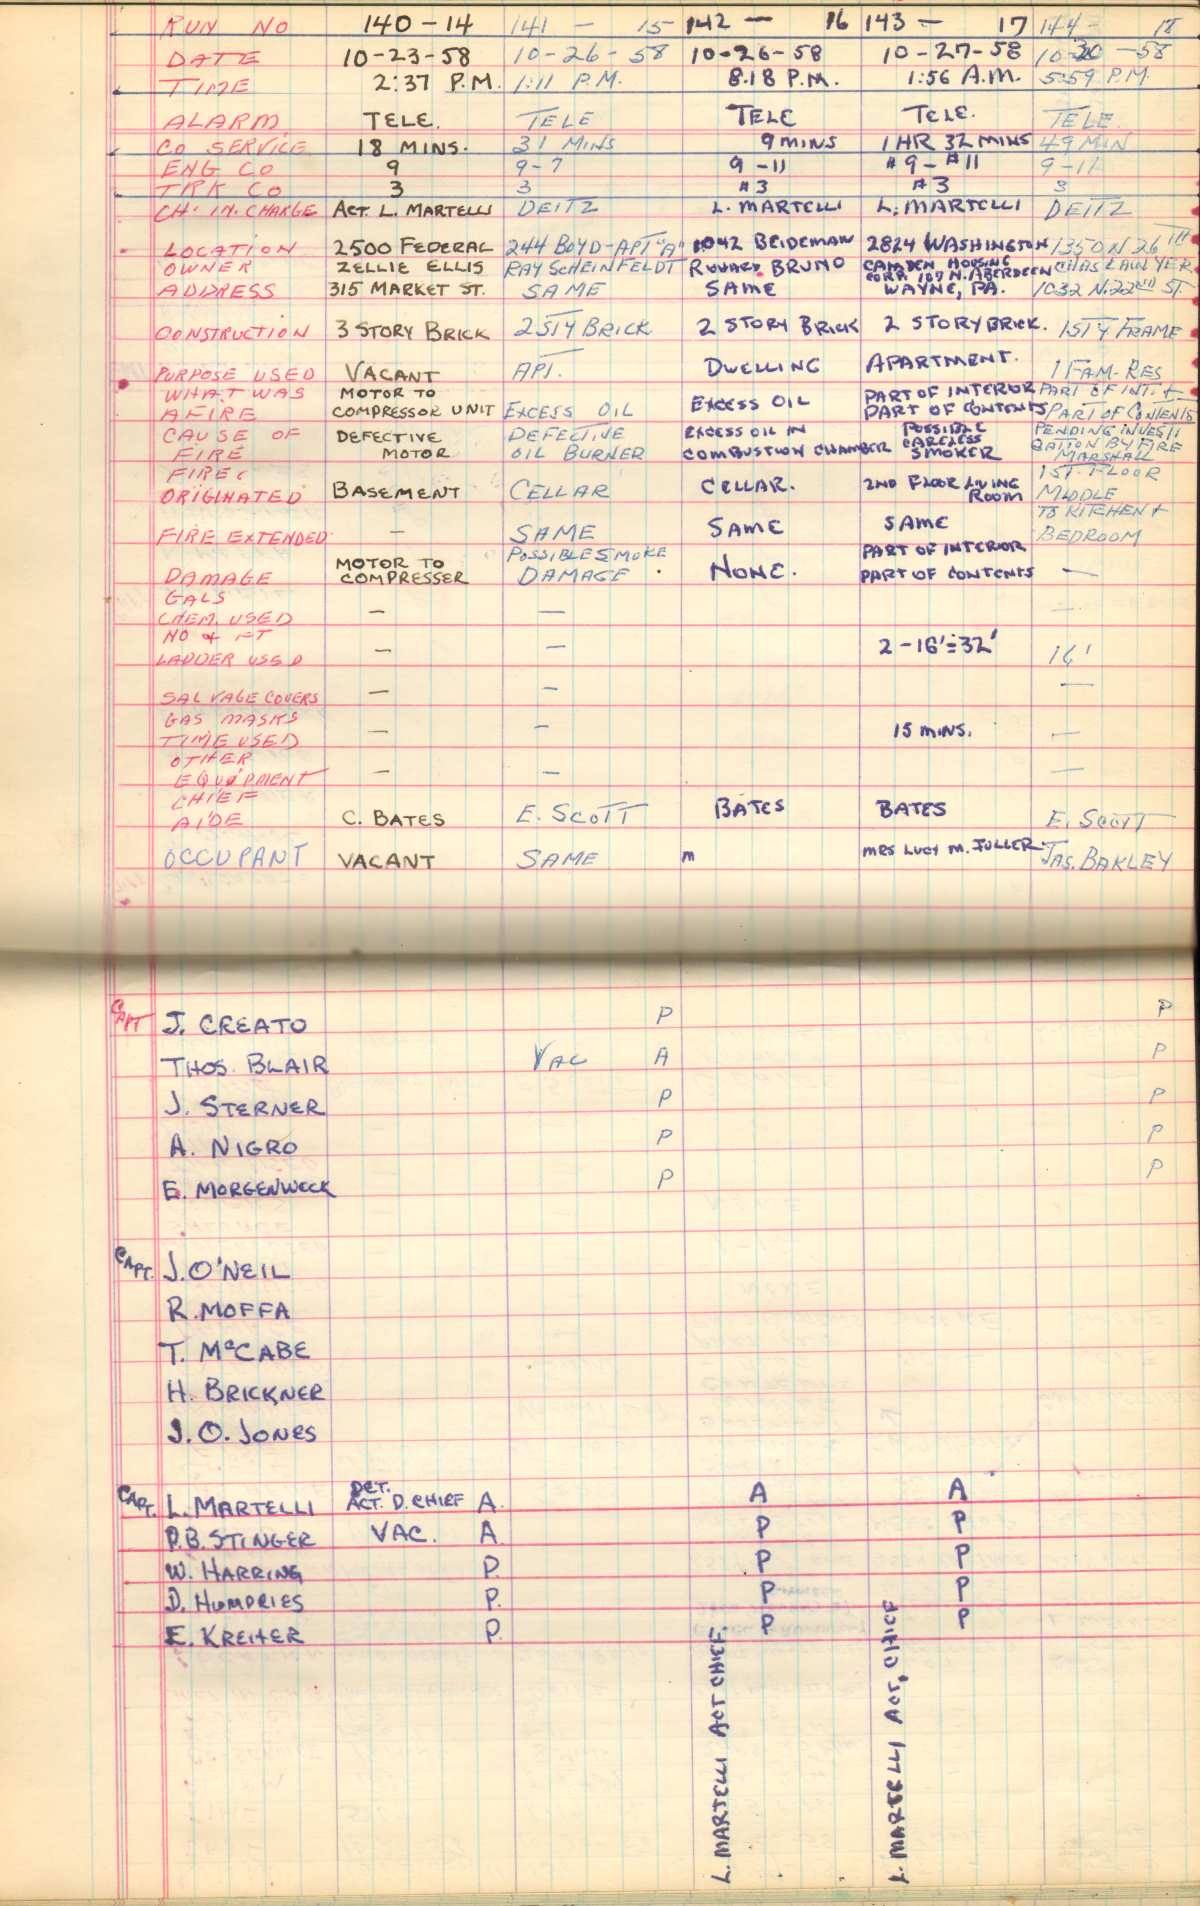 RUN NO 140-14 141 - 15 142 - 16 143 - 17 144 - 18
DATE 10-23-58 10-26-58 10-26-58 10-27-58 10-30-58
TIME 2:37 P.M. 1:11 P.M. 8:18 P.M. 1:56 A.M. 5:59 P.M.
ALARM TELE. TELE TELE TELE. TELE.
CO SERVICE 18 MINS. 31 MINS 9 MINS 1 HR 32 MINS 49 MIN
ENG CO 9 9-7 9-11 #9-#11 9-11
TRK CO 3 3 #3 #3 3
CH. IN. CHARGE ACT. L. MARTELLI DEITZ L. MARTELLI L. MARTELLI DEITZ
LOCATION 2500 FEDERAL 244 BOYD-APT "A" 1042 BEIDEMAN 2824 WASHINGTON 1350 N 26TH
OWNER ZELLIE ELLIS RAY SCHEINFELDT BRUNO CAMDEN HOUSING CORP. 107 N. ABERDEEN CHAS LAWYER
ADDRESS 315 MARKET ST. SAME SAME WAYNE, PA. 1032 N. 22ND ST.
CONSTRUCTION 3 STORY BRICK 2 STY BRICK 2 STORY BRICK 2 STORY BRICK. 1 STY FRAME
PURPOSE USED VACANT APT. DWELLING APARTMENT. 1 FAM-RES
WHAT WAS AFIRE MOTOR TO COMPRESSOR UNIT EXCESS OIL EXCESS OIL PART OF INTERIOR PART OF CONTENTS PART OF INT. + PART OF CONTENTS
CAUSE OF FIRE DEFECTIVE MOTOR DEFECTIVE OIL BURNER EXCESS OIL IN COMBUSTION CHAMBER POSSIBLE CARELESS SMOKER PENDING INVESTIGATION BY FIRE MARSHALL
FIRE ORIGINATED BASEMENT CELLAR CELLAR. 2ND FLOOR LIVING ROOM 1ST. FLOOR MIDDLE
FIRE EXTENDED - SAME SAME SAME TO KITCHEN + BEDROOM
DAMAGE MOTOR TO COMPRESSER POSSIBLE SMOKE DAMAGE NONE. PART OF INTERIOR PART OF CONTENTS -
GALS CHEM. USED - - -
NO & FT LADDER USED - - 2-16'=32' 16'
SALVAGE COVERS - - -
GAS MASKS TIME USED - - 15 MINS. -
OTHER EQUIPMENT - - -
CHIEF AIDE C. BATES E. SCOTT BATES BATES E. SCOTT
OCCUPANT VACANT SAME m MRS LUCY M. FULLER JAS. BAKLEY
CAPT J. CREATO P P
THOS. BLAIR VAC A P
J. STERNER P P
A. NIGRO P P
E. MORGENWECK P P
CAPT. J. O'NEIL
R. MOFFA
T. McCABE
H. BRICKNER
J. O. JONES
CAPT. L. MARTELLI DET. ACT. D. CHIEF A. A A
P.B. STINGER VAC. A. P P
W. HARRING P. P P
D. HUMPRIES P. P P
E. KREITER P. P P
L. MARTELLI ACT CHIEF.
L. MARTELLI ACT, CHIEF